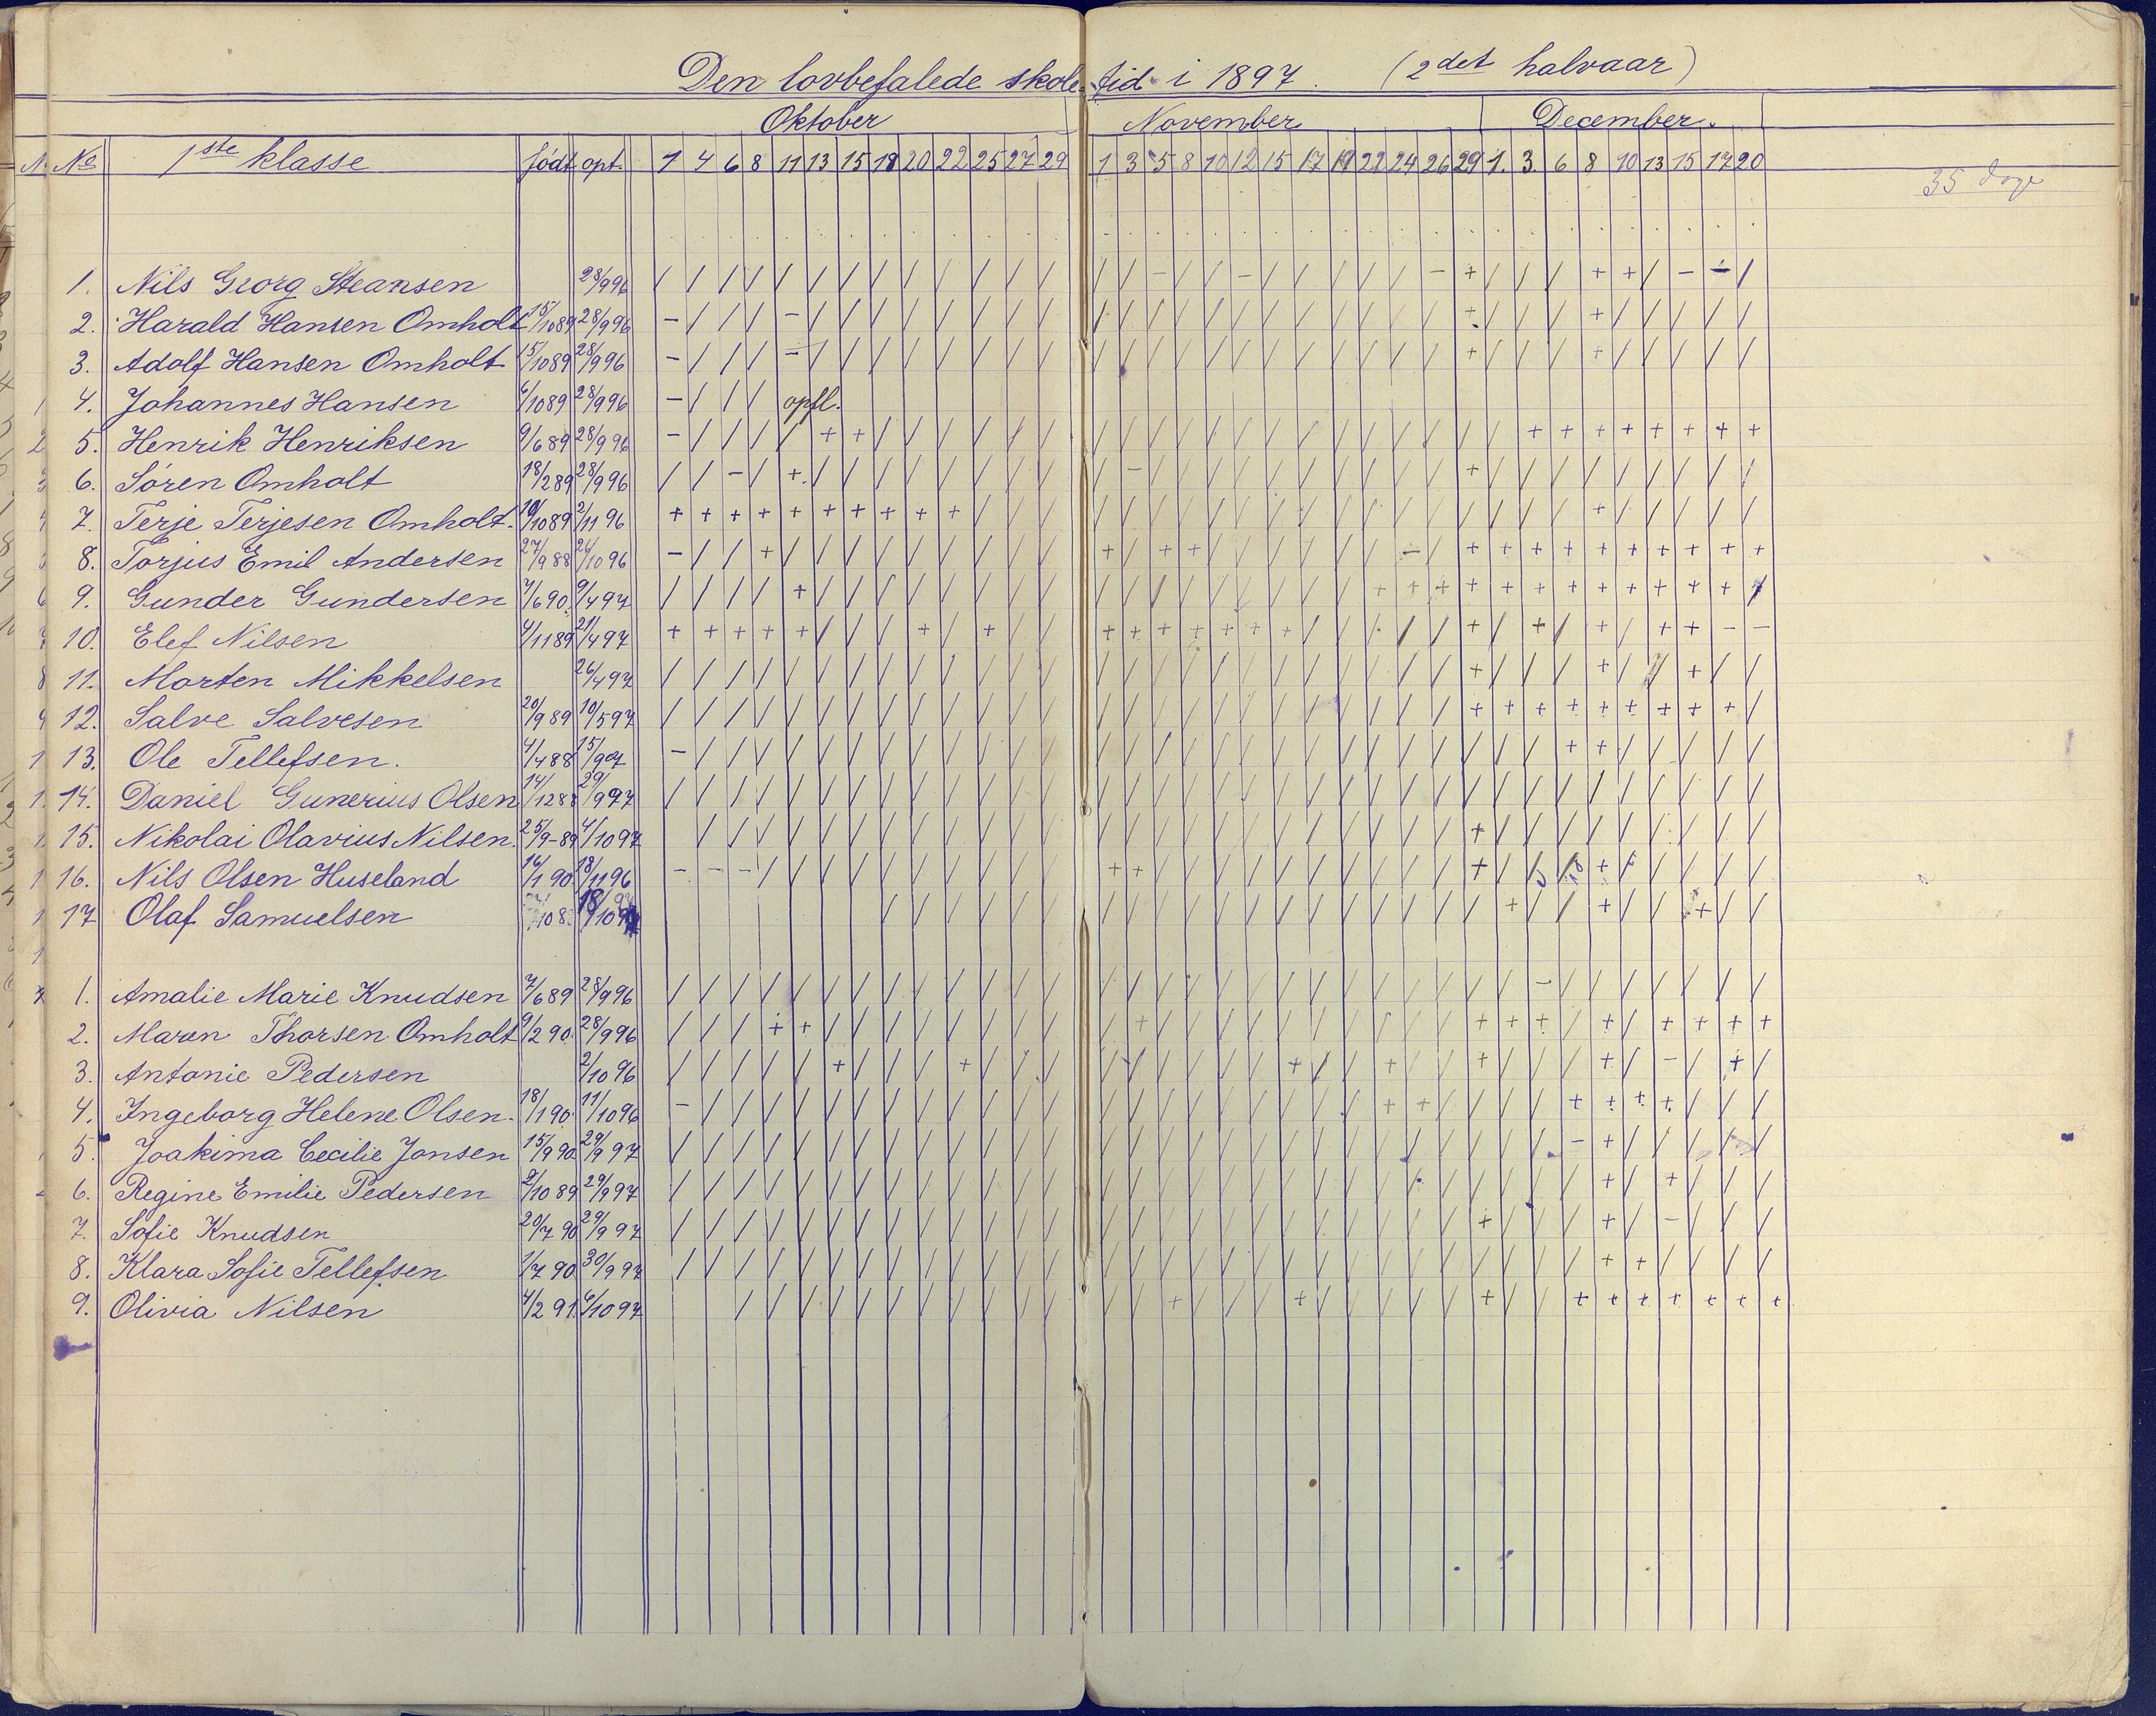 Den lovbefalede skole-tid i 1897. (2det halvaar)
Oktober November December.
No 1ste klasse født opt. 1 4 6 8 11 13 15 18 20 22 25 27 29 1 3 5 8 10 12 15 17 19 22 24 26 29 1. 3. 6 8 10 13 15 17 20
35 dage
1. Nils Georg Steansen 28/9 96 / / / / / / / / / / / / / / / - / / - / / / / / - + / / / + + / - - /
2. Harald Hansen Omholt 15/10 89 28/9 96 - / / / - / / / / / / / / / / / / / / / / / / / / + / / / + / / / / /
3. Adolf Hansen Omholt 15/10 89 28/9 96 - / / / - / / / / / / / / / / / / / / / / / / / / + / / / + / / / / /
4. Johannes Hansen 6/10 89 28/9 96 - / / / opfl.
5. Henrik Henriksen 9/6 89 28/9 96 - / / / / + + / / / / / / / / / / / / / / / / / / / / + + + + + + + +
6. Søren Omholt 18/2 89 28/9 96 / / - / + / / / / / / / / / - / / / / / / / / / / + / / / / / / / / /
7. Terje Terjesen Omholt. 10/10 89 2/11 96 + + + + + + + + + + / / / / / / / / / / / / / / / / / / / + / / / / /
8. Torjus Emil Andersen 27/9 88 26/10 96 - / / + / / / / / / / / / + / + + / / / / / / - / + + + + + + + + + +
9. Gunder Gundersen 7/6 90. 9/4 97 / / / / + / / / / / / / / / / / / / / / / / + + + + + + + + + + + + /
10. Elef Nilsen 4/11 89 21/4 97 + + + + + / / / + / + / / + + + + + + + / / / / / + / + / + / + + - -
11. Morten Mikkelsen 26/4 97 / / / / / / / / / / / / / / / / / / / / / / / / / + / / / + / / + / /
12. Salve Salvesen 20/9 89 10/5 97 / / / / / / / / / / / / / / / / / / / / / / / / / + + + + + + + + + /
13. Ole Tellefsen. 4/4 88 15/9 97 - / / / / / / / / / / / / / / / / / / / / / / / / / / / + + / / / / /
14. Daniel Gunerius Olsen 14/12 88 29/9 97 / / / / / / / / / / / / / / / / / / / / / / / / / / / / / / / / / / /
15. Nikolai Olavius Nilsen. 25/9-89 4/10 97 / / / / / / / / / / / / / / / / / / / / / / / / + / / / / / / / / /
16. Nils Olsen Huseland 16/1 90. 18/11 96 - - - / / / / / / / / / / + + / / / / / / / / / / + / / / + / / / / /
17 Olaf Samuelsen 18/10 97 / / / / / / / / / / / / / / / / / / / + / / + / / + / /
1. Amalie Marie Knudsen 7/6 89 28/9 96 / / / / / / / / / / / / / / / / / / / / / / / / / / / - / / / / / / /
2. Maren Thorsen Omholt 9/2 90. 28/9 96 / / / + + / / / / / / / / / + / / / / / / / / / / + + + / + / + + + +
3. Antonie Pedersen 2/10 96 / / / / / + / / / + / / / / / / / / / + / / + / / + / / / + / - / + /
4. Ingeborg Helene Olsen. 18/1 90. 11/10 96 - / / / / / / / / / / / / / / / / / / / / / + + / / / / + + + + / / /
5. Joakima Cecilie Jonsen 15/9 90 29/9 97 / / / / / / / / / / / / / / / / / / / / / / / / / / / / - + / / / / /
6. Regine Emilie Pedersen 2/10 89 29/9 97 / / / / / / / / / / / / / / / / / / / / / / / / / / / / / + / + / / /
7. Sofie Knudsen 20/7 90 29/9 97 / / / / / / / / / / / / / / / / / / / / / / / / / + / / / + / - / / /
8. Klara Sofie Tellefsen 1/7 90 30/9 97 / / / / / / / / / / / / / / / / / / / / / / / / / / / / / + + / / / /
9. Olivia Nilsen 4/2 91. 6/10 97 / / / / / / / / / / / / / + / / / + / / / / / + / / + + + + + + +